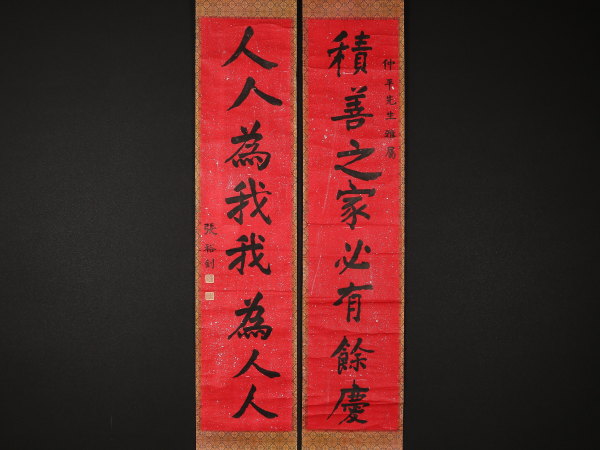 仲平先生雅屬
積善之家必有餘慶
人人為我我為人人
張裕釗